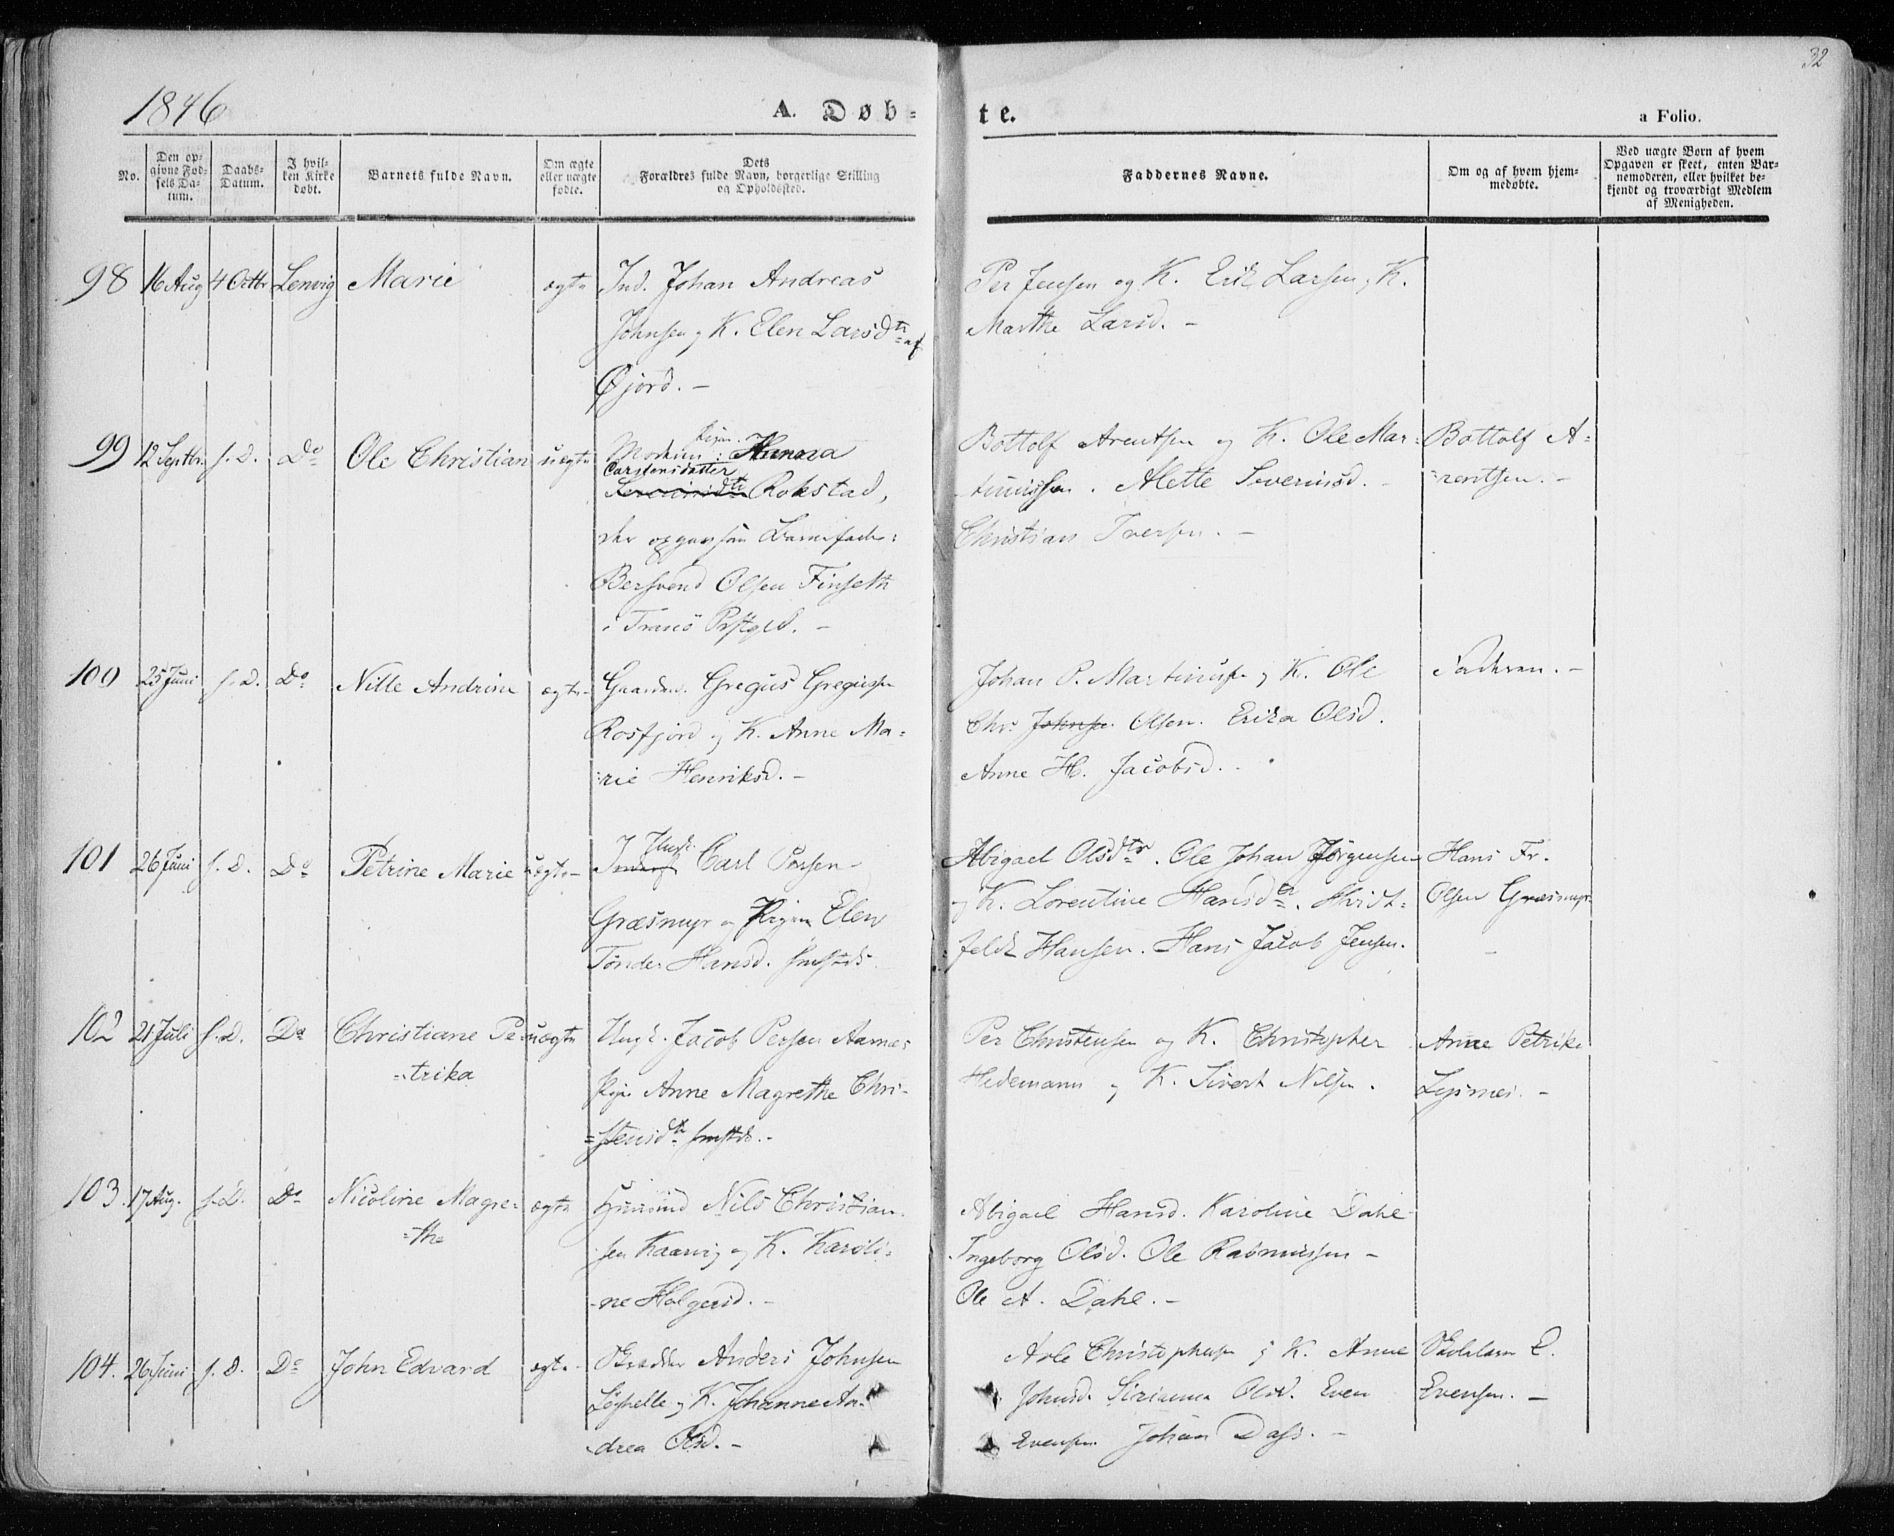 32
1846 A. Døb- te. a Folio.
No. Den opgivne Fødsels Datum. Daabs-Datum. I hvilken Kirke døbt. Barnets fulde Navn. Om ægte eller uægte fødte. Dets Forældres fulde Navn, borgerlige Stilling og Opholdssted. Faddernes Navne. Om og af hvem hjemmedøbte. Ved uægte Børn af hvem Opgaven er skeet, enten Barnemoderen, eller hvilket bekjendt og troværdigt Medlem af Menigheden.
98 16 Aug 4 Octbr Lenvig Marie ægte Ind. Johan Andreas Per Jensen og K. Erik Larsen, K.
Johnsen og K. Elen Larsdtr af Marthe Larsd. -
Øjord. -
99 12 Septbr. s. D. Do Ole Christian uægte Moderen: Pigen Hanna Bottolf Arentsen og K. Ole Mar- Bottolf A-
Carstensdatter Rokstad, tinussen. Alette Severinsd. - rentsen. -
der opgav som Barnefader: Christian Iversen. -
Bersvend Olsen Finseth
i Tranö Præstgd. -
100 25 Juni s. D. Do Nille Andrine ægte Gaardm. Gregus Gregussen Johan P. Martinusen og K. Ole Faderen. -
Rosfjord og K. Anne Ma- Chr. Johnsen Olsen. Erika Olsd.
rie Henriksd. - Anne H. Jacobsd. -
101 26 Juni s. D. Do Petrine Marie uægte Ungk. Carl Persen Abigael Olsdtr. Ole Johan Jørgensen Hans Fr.
Græsmyr og Pigen Elen og K. Lorentine Hansdtr. Hvidt- Olsen Græsmyr
Tønder Hansd. smstds. feldt Hansen. Hans Jacob Jensen. -
102 21 Juli s. D. Do Christiane Pe- uægte Ungk. Jacob Persen Aarnes Per Christensen og K. Christopher Anne Petrike
trika Pige Anne Magrethe Chri- Hedemann og K. Sivert Nilsen. Lysnes. -
stensdtr smstds. -
103. 17 Aug. s. D. Do Nicoline Magre- ægte Huusmd Nils Christian- Abigael Hansd. Karoline Dahl
the sen Kaarvig og K. Karoli- Ingeborg Olsd. Ole Rasmussen -
ne Holgersd. - Ole A. Dahl. -
104. 26 Juni s. D. Do John Edvard ægte Anders Johnsen Christophersen og K. Anne Skolelærer E.
og K. Johanne An- Johnsd. Olsd. Even Evensen. -
drea Olsd. - Evensen Johan Dass. -